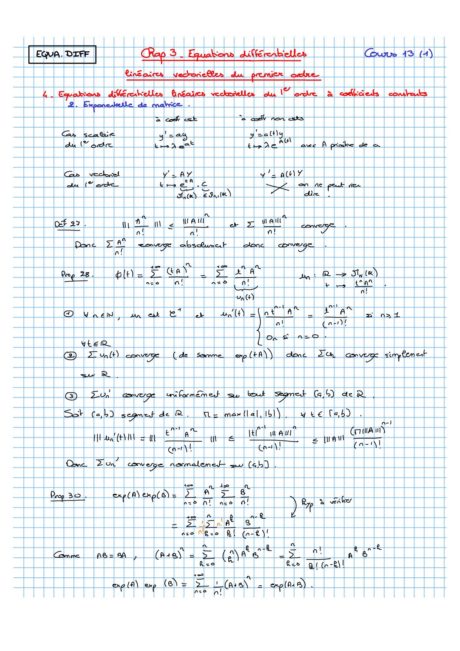 EQUA. DIFF
Chap 3 - Equations différentielles
Cours 13 (1)
linéaires vectorielles du premier ordre
4. Equations différentielles linéaires vectorielles du 1er ordre à coefficients constants
2. Exponentielle de matrice.
à coeff cst à coeff non csts
Cas scalaire du 1er ordre
y' = ay y' = a(t)y
t ↦ λ e^{at} t ↦ λ e^{A(t)} avec A primitive de a
Cas vectoriel du 1er ordre
Y' = AY Y' = A(t)Y
t ↦ e^{tA} . C on ne peut rien dire.
Déf 27. ||| A^n/n! ||| ≤ |||A|||^n/n! et Σ |||A|||^n/n! converge.
Donc Σ A^n/n! converge absolument donc converge.
Prop 28. ϕ(t) = Σ_{n=0}^{+∞} (tA)^n/n! = Σ_{n=0}^{+∞} t^n A^n/n! u_n : ℝ → M_n(K)
u_n(t) t ↦ t^n A^n/n!
① ∀ n ∈ ℕ, un est C^∞ et un'(t) = { n t^{n-1} A^n/n! = t^{n-1} A^n/(n-1)! si n ≥ 1
0n si n = 0.
∀ t ∈ ℝ
② Σ un(t) converge (de somme exp(tA)) donc Σ un converge simplement
sur ℝ.
③ Σ un' converge uniformément sur tout segment [a,b] de ℝ.
Soit [a,b] segment de ℝ. M = max(|a|,|b|). ∀ t ∈ [a,b].
||| un'(t) ||| = ||| t^{n-1} A^n/(n-1)! ||| ≤ |t|^{n-1} |||A|||^n/(n-1)! ≤ |||A||| (M|||A|||)^{n-1}/(n-1)!
Donc Σ un' converge normalement sur [a,b].
Prop 30. exp(A) exp(B) = Σ_{n=0}^{+∞} A^n/n! Σ_{n=0}^{+∞} B^n/n!
Hyp à vérifier
= Σ_{n=0}^{+∞} Σ_{k=0}^{n} A^k/k! B^{n-k}/(n-k)!
Comme AB = BA, (A+B)^n = Σ_{k=0}^{n} (n k) A^k B^{n-k} = Σ_{k=0}^{n} n!/(k!(n-k)!) A^k B^{n-k}
exp(A) exp(B) = Σ_{n=0}^{+∞} 1/n! (A+B)^n = exp(A+B).